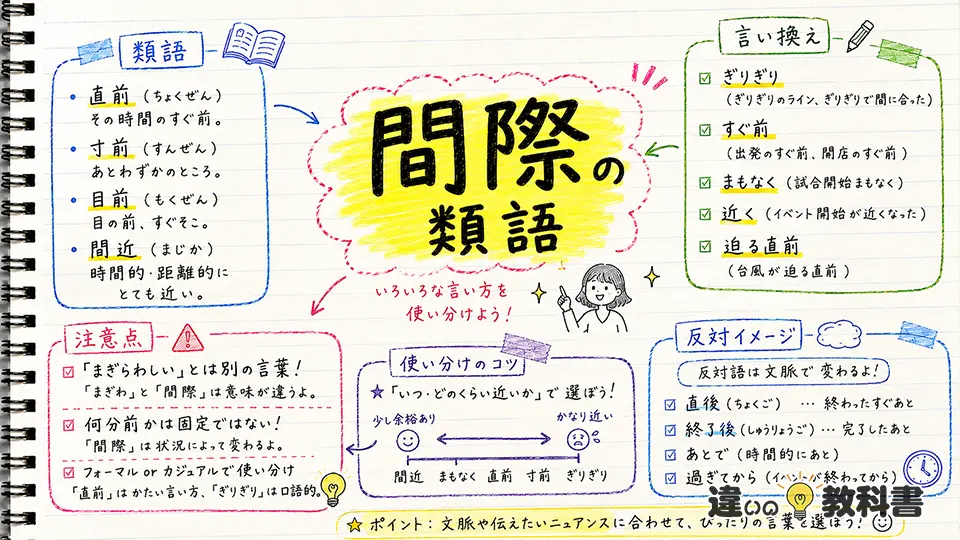 間際の
類語
いろいろな言い方を
使い分けよう!
類語
・直前(ちょくぜん)
その時間のすぐ前。
・寸前(すんぜん)
あとわずかのところ。
・目前(もくぜん)
目の前、すぐそこ。
・間近(まじか)
時間的・距離的に
とても近い。
言い換え
☑ ぎりぎり
(ぎりぎりのライン、ぎりぎりで間に合った)
☑ すぐ前
(出発のすぐ前、開店のすぐ前)
☑ まもなく(試合開始まもなく)
☑ 近く(イベント開始が近くなった)
☑ 迫る直前
(台風が迫る直前)
注意点
☑「まぎらわしい」とは別の言葉!
「まぎわ」と「間際」は意味が違うよ。
☑ 何分前かは固定ではない!
「間際」は状況によって変わるよ。
☑ フォーマル or カジュアルで使い分け
「直前」はかたい言い方、「ぎりぎり」は口語的。
使い分けのコツ
★「いつ・どのくらい近いか」で選ぼう!
少し余裕あり かなり近い
間近 まもなく 直前 寸前 ぎりぎり
反対イメージ
反対語は文脈で変わるよ!
☑ 直後(ちょくご) … 終わったすぐあと
☑ 終了後(しゅうりょうご)… 完了したあと
☑ あとで(時間的にあと)
☑ 過ぎてから(イベントが終わってから)
違いの教科書
★ ポイント:文脈や伝えたいニュアンスに合わせて、ぴったりの言葉を選ぼう!